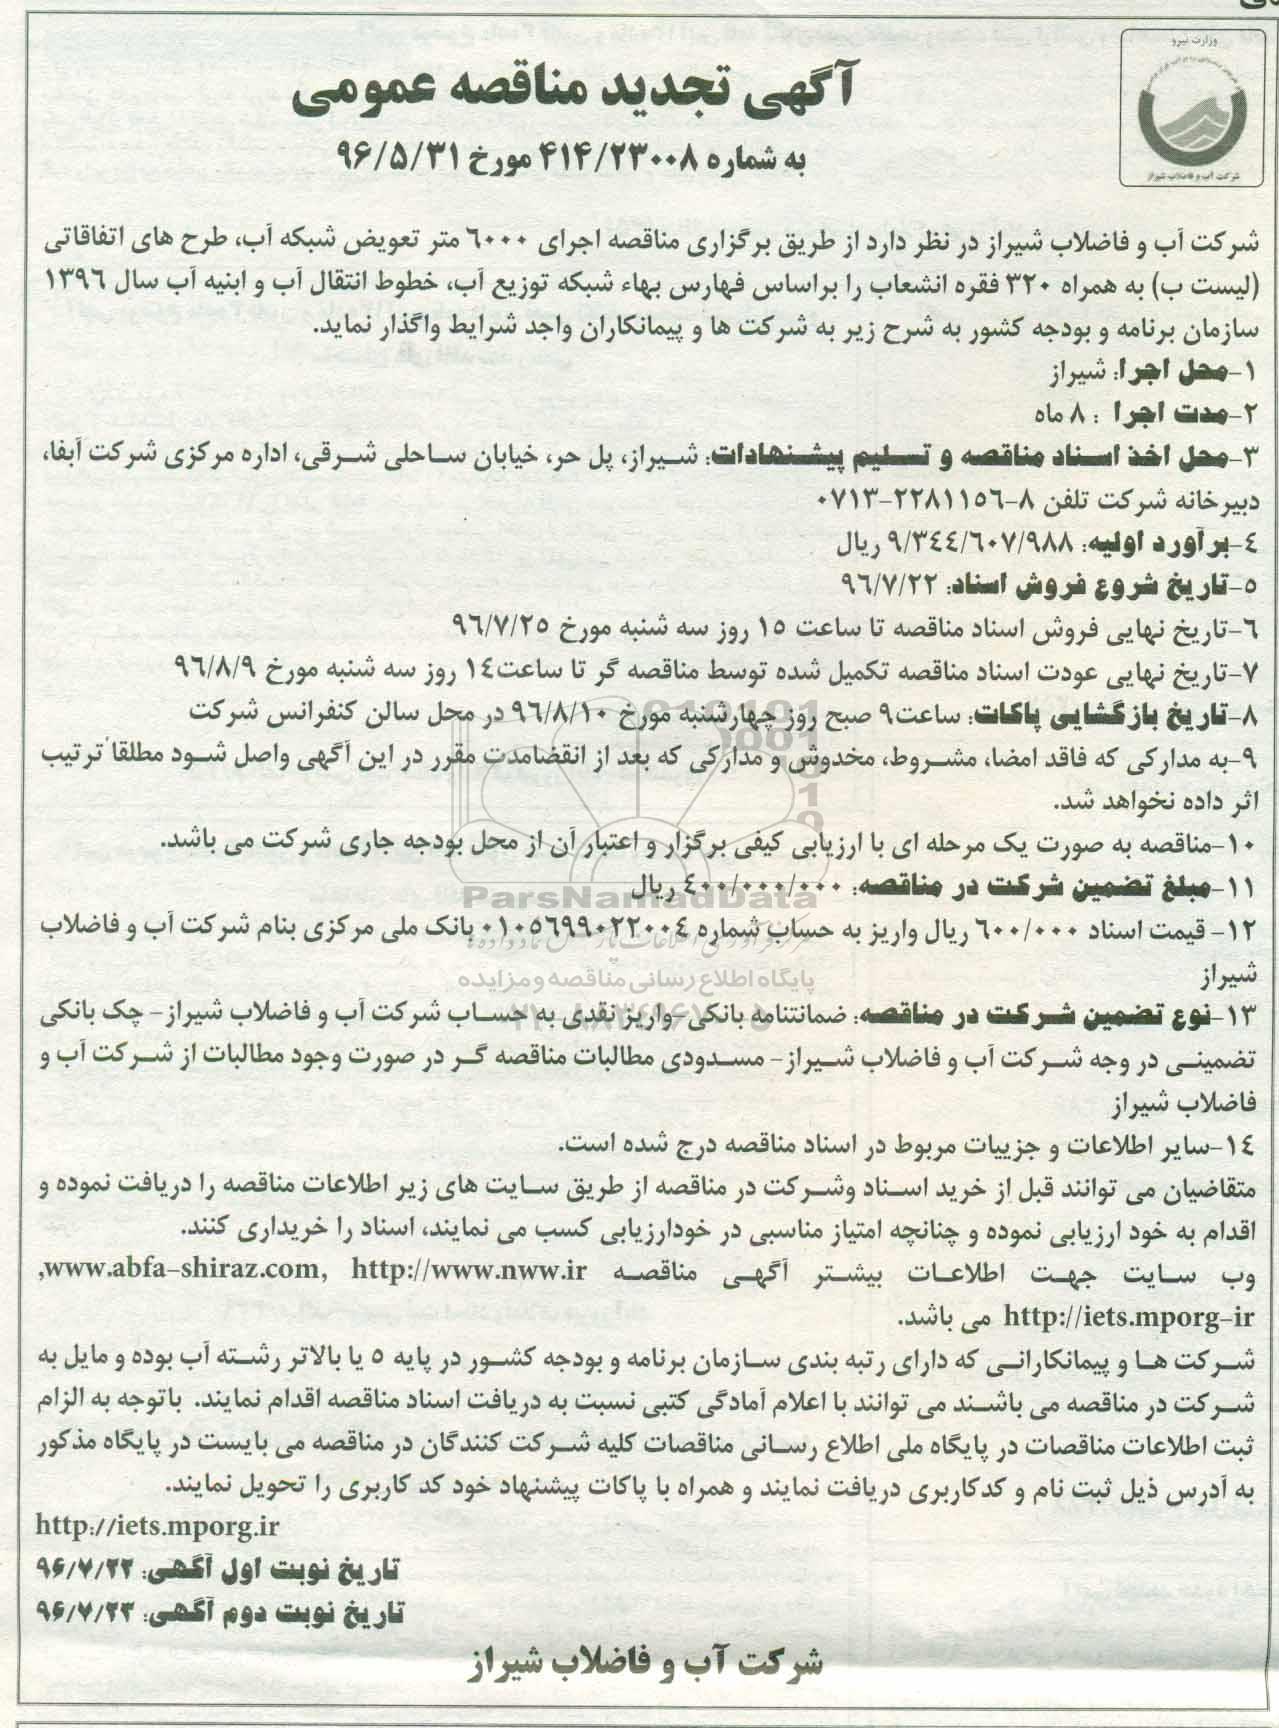 وزارت نیرو
شرکت آب و فاضلاب شیراز
آگهی تجدید مناقصه عمومی
به شماره ۴۱۴/۲۳۰۰۸ مورخ ۹۶/۵/۳۱
شرکت آب و فاضلاب شیراز در نظر دارد از طریق برگزاری مناقصه اجرای ۶۰۰۰ متر تعویض شبکه آب، طرح های اتفاقاتی
(لیست ب) به همراه ۳۲۰ فقره انشعاب را براساس فهارس بهاء شبکه توزیع آب، خطوط انتقال آب و ابنیه آب سال ۱۳۹۶
سازمان برنامه و بودجه کشور به شرح زیر به شرکت ها و پیمانکاران واجد شرایط واگذار نماید.
۱-محل اجرا: شیراز
۲-مدت اجرا : ۸ ماه
۳-محل اخذ اسناد مناقصه و تسلیم پیشنهادات: شیراز، پل حر، خیابان ساحلی شرقی، اداره مرکزی شرکت آبفا،
دبیرخانه شرکت تلفن ۸-۲۲۸۱۱۵۶-۰۷۱۳
۴-برآورد اولیه: ۹/۳۴۴/۶۰۷/۹۸۸ ریال
۵-تاریخ شروع فروش اسناد: ۹۶/۷/۲۲
۶-تاریخ نهایی فروش اسناد مناقصه تا ساعت ۱۵ روز سه شنبه مورخ ۹۶/۷/۲۵
۷-تاریخ نهایی عودت اسناد مناقصه تکمیل شده توسط مناقصه گر تا ساعت۱۴ روز سه شنبه مورخ ۹۶/۸/۹
۸-تاریخ بازگشایی پاکات: ساعت۹ صبح روز چهارشنبه مورخ ۹۶/۸/۱۰ در محل سالن کنفرانس شرکت
۹-به مدارکی که فاقد امضا، مشروط، مخدوش و مدارکی که بعد از انقضامدت مقرر در این آگهی واصل شود مطلقاً ترتیب
اثر داده نخواهد شد.
۱۰-مناقصه به صورت یک مرحله ای با ارزیابی کیفی برگزار و اعتبار آن از محل بودجه جاری شرکت می باشد.
۱۱-مبلغ تضمین شرکت در مناقصه: ۴۰۰/۰۰۰/۰۰۰ ریال
ParsNamadData
۱۲- قیمت اسناد ۶۰۰/۰۰۰ ریال واریز به حساب شماره ۰۱۰۵۶۹۹۰۲۲۰۰۴ بانک ملی مرکزی بنام شرکت آب و فاضلاب
شیراز
پایگاه اطلاع رسانی مناقصه و مزایده
۱۳-نوع تضمین شرکت در مناقصه: ضمانتنامه بانکی-واریز نقدی به حساب شرکت آب و فاضلاب شیراز- چک بانکی
تضمینی در وجه شرکت آب و فاضلاب شیراز- مسدودی مطالبات مناقصه گر در صورت وجود مطالبات از شرکت آب و
فاضلاب شیراز
۱۴-سایر اطلاعات و جزییات مربوط در اسناد مناقصه درج شده است.
متقاضیان می توانند قبل از خرید اسناد وشرکت در مناقصه از طریق سایت های زیر اطلاعات مناقصه را دریافت نموده و
اقدام به خود ارزیابی نموده و چنانچه امتیاز مناسبی در خودارزیابی کسب می نمایند، اسناد را خریداری کنند.
وب سایت جهت اطلاعات بیشتر آگهی مناقصه www.abfa-shiraz.com, http://www.nww.ir,
http://iets.mporg-ir می باشد.
شرکت ها و پیمانکارانی که دارای رتبه بندی سازمان برنامه و بودجه کشور در پایه ۵ یا بالاتر رشته آب بوده و مایل به
شرکت در مناقصه می باشند می توانند با اعلام آمادگی کتبی نسبت به دریافت اسناد مناقصه اقدام نمایند. باتوجه به الزام
ثبت اطلاعات مناقصات در پایگاه ملی اطلاع رسانی مناقصات کلیه شرکت کنندگان در مناقصه می بایست در پایگاه مذکور
به آدرس ذیل ثبت نام و کدکاربری دریافت نمایند و همراه با پاکات پیشنهاد خود کد کاربری را تحویل نمایند.
http://iets.mporg.ir
تاریخ نوبت اول آگهی: ۹۶/۷/۲۲
تاریخ نوبت دوم آگهی: ۹۶/۷/۲۳
شرکت آب و فاضلاب شیراز